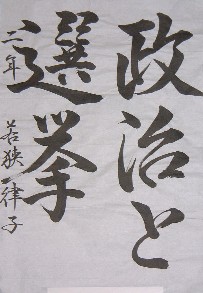 政治と
選挙
二年 若狭律子